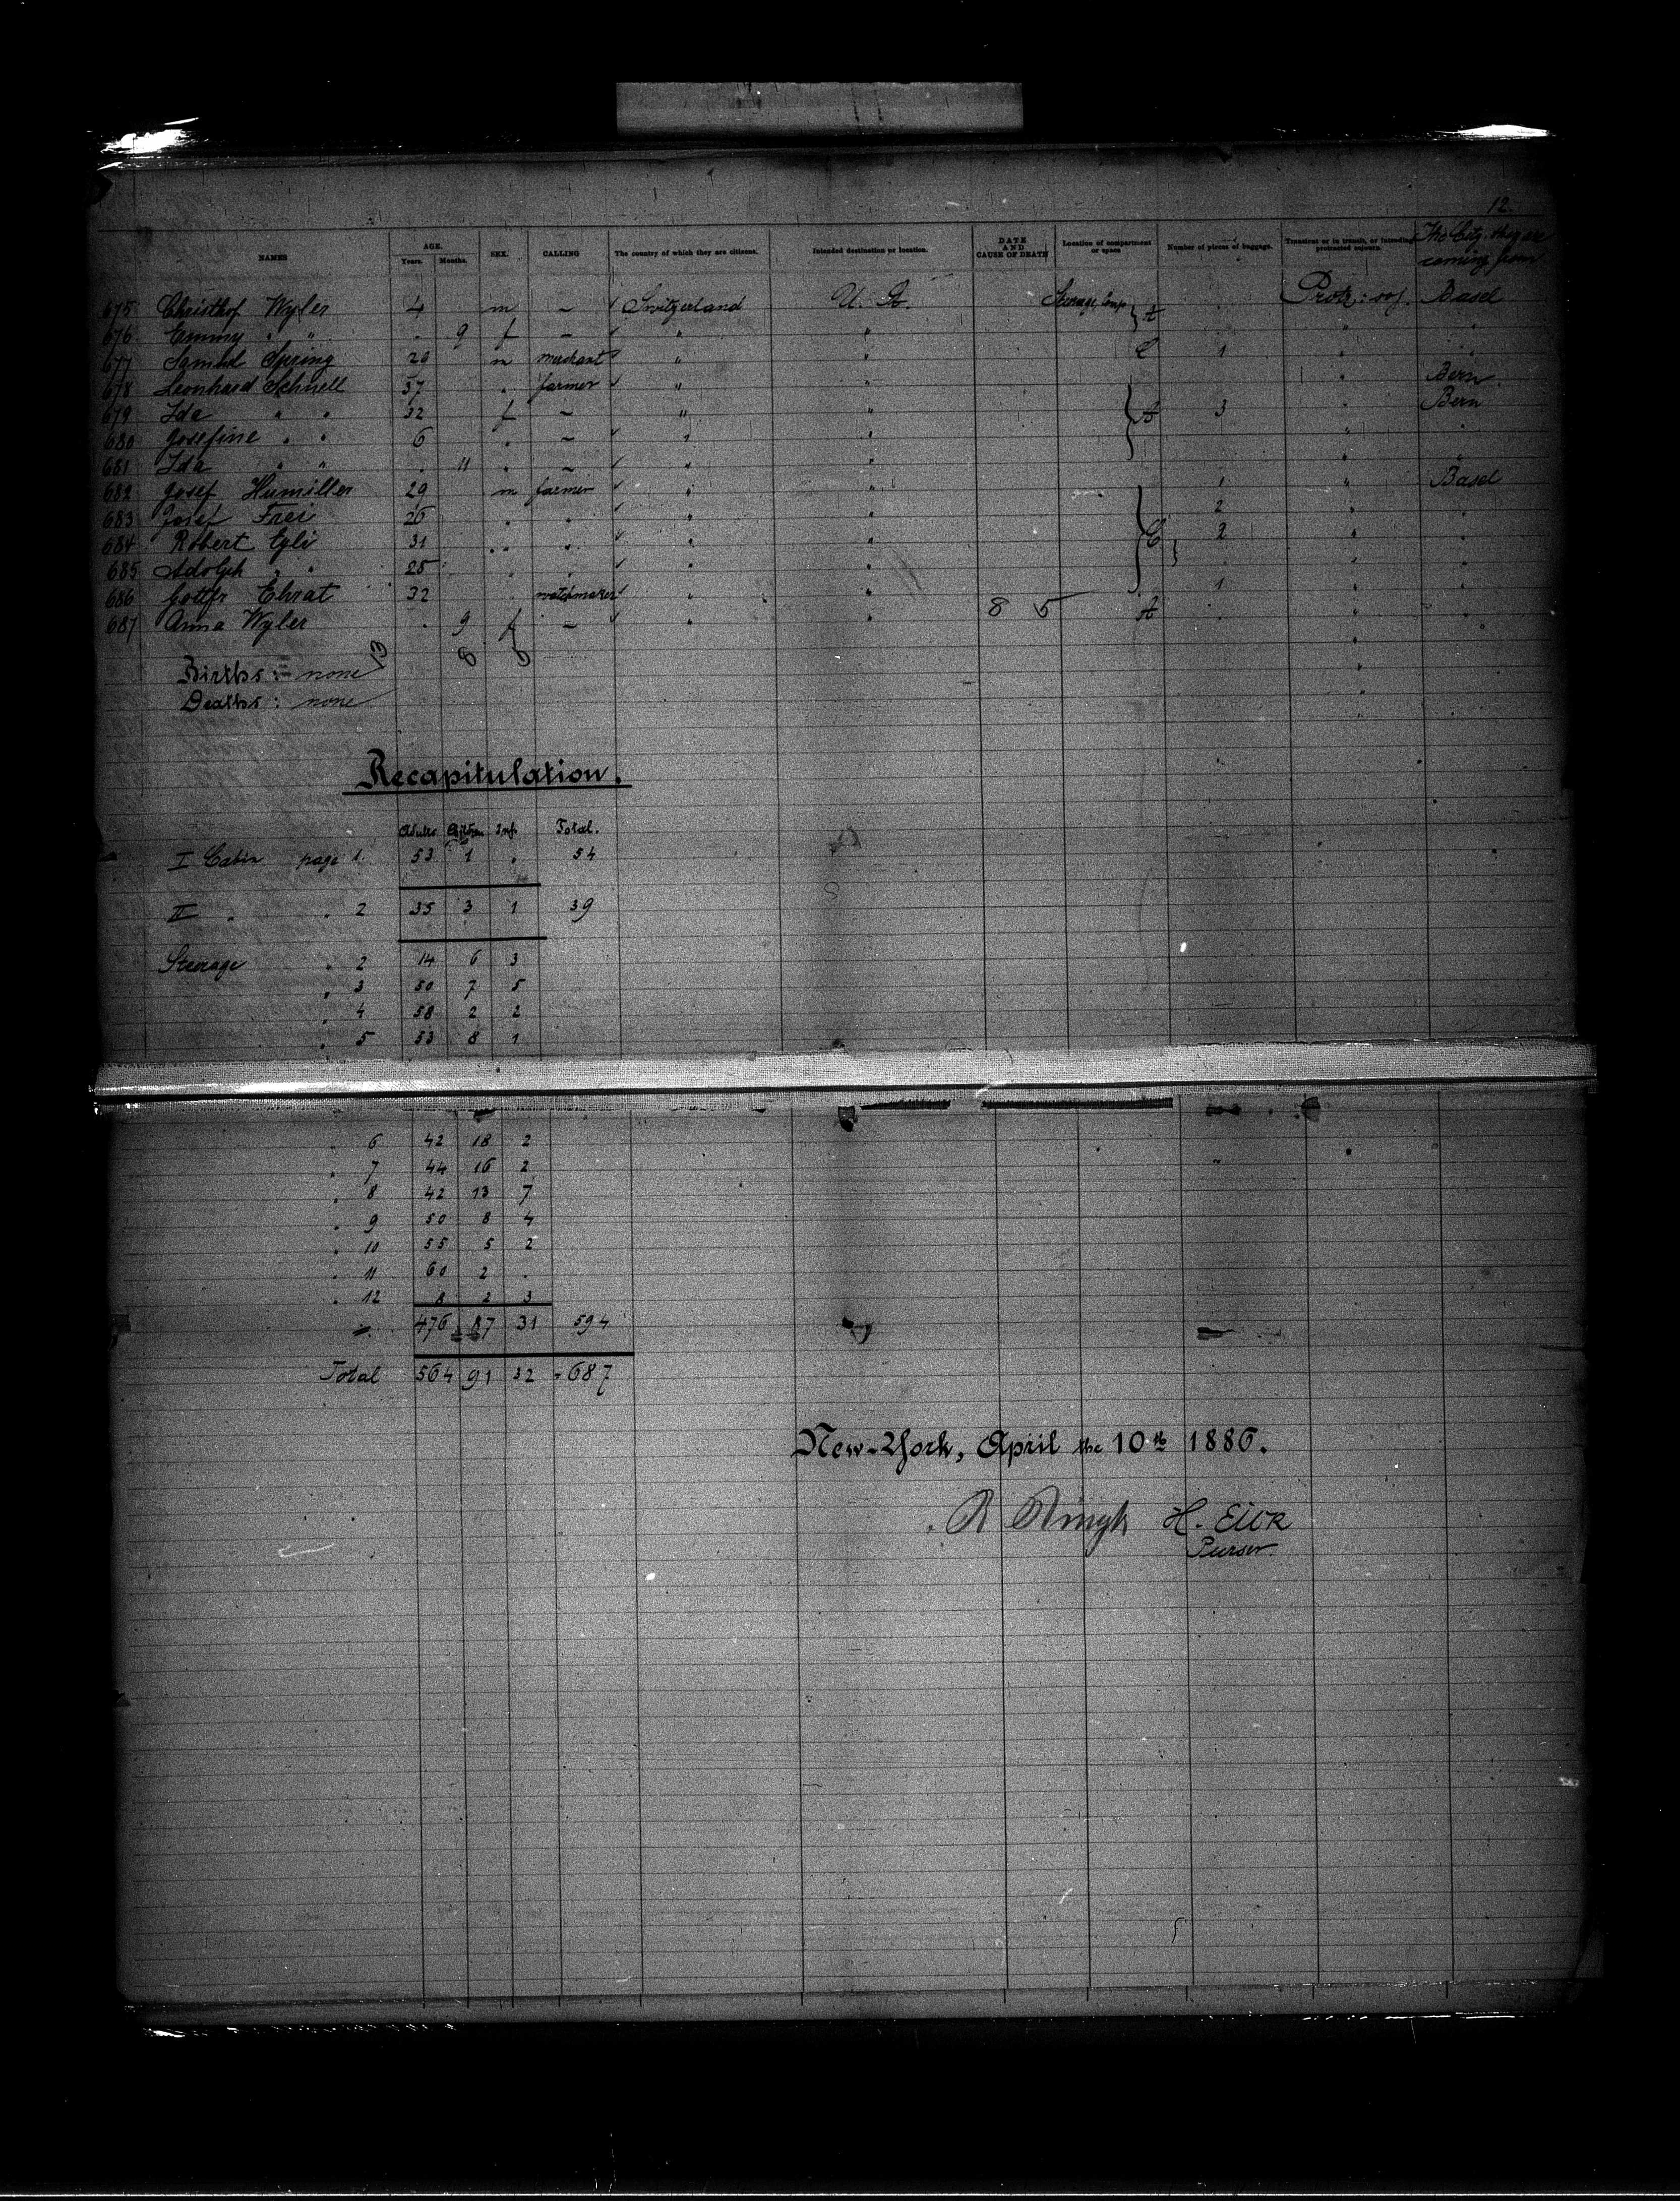 12.
NAMES AGE. Years. Months. SEX. CALLING The country of which they are citizens. Intended destination or location. DATE AND CAUSE OF DEATH Location of compartment or space Number of pieces of baggage. Transient or in transit, or intending protracted sojourn. The City they are coming from
675 Christhof Wyler 4 m – Switzerland U. St. Steerage, Comp A . Prot: soj. Basel
676 Emmy " " . 9 f – " " " "
677 Samuel Spring 29 m merchant " " C 1 " "
678 Leonhard Schnell 37 " farmer " " " Bern
679 Ida " " 32 f – " " A 3 " Bern
680 Josefine " " 6 " – " " " "
681 Ida " " . 11 " – " " " "
682 Josef Humiller 29 m farmer " " 1 " Basel
683 Josef Frei 26 " " " " 2 " "
684 Robert Egli 31 " " " " C 2 " "
685 Adolph " " 25 " " " " " "
686 Gottfr Ehrat 32 " " " 1 " "
687 Anna Wyler . 9 f – " " 8 5 A . " "
Births: – none 13 8 5
Deaths: none
Recapitulation.
Adults Children Inf. Total.
I Cabin page 1. 53 1 . 54
II " " 2 35 3 1 39
Steerage " 2 14 6 3
" 3 50 7 5
" 4 58 2 2
" 5 53 8 1
" 6 42 18 2
" 7 44 16 2
" 8 42 13 7
" 9 50 8 4
" 10 55 5 2
" 11 60 2 .
" 12 8 2 3
476 87 31 594
Total 564 91 32 = 687
New-York, April the 10th 1886.
R Ringk H. Eick
Purser.